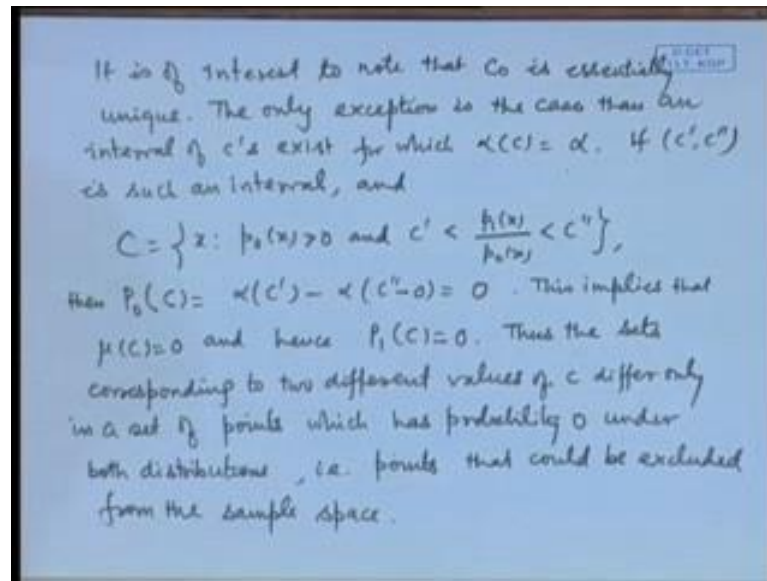 It is of interest to note that C₀ is essentially
unique. The only exception is the case than an
interval of c's exist for which α(c) = α. If (c', c'')
is such an interval, and
C = {x: p₀(x) > 0 and c' < p₁(x)/p₀(x) < c''},
then P₀(C) = α(c') - α(c''-0) = 0. This implies that
μ(C) = 0 and hence P₁(C) = 0. Thus the sets
corresponding to two different values of c differ only
in a set of points which has probability 0 under
both distributions, i.e. points that could be excluded
from the sample space.